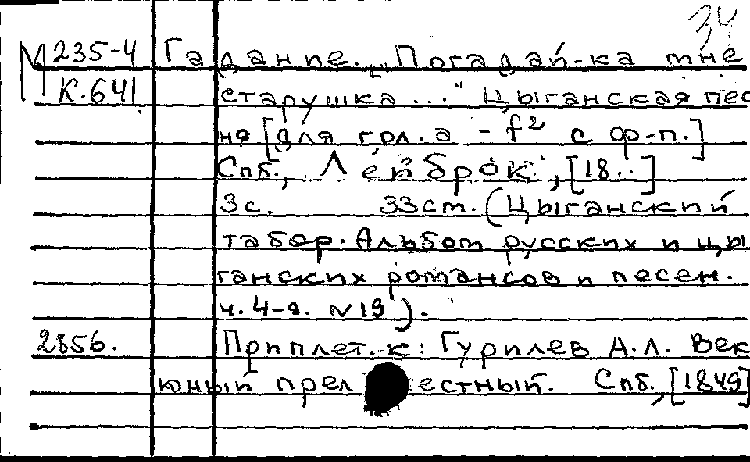 34
М 235-4 Гадание. „Погадай-ка мне
К.641 старушка ..." Цыганская пес
ня [для гол. а - f² с ф-п.]
Спб., Лейброк, [18..]
3с. 33ст. (Цыганский
табор. Альбом русских и цы
ганских романсов и песен.
ч. 4-я. №19).
2856. Приплет. к: Гурилев А.Л. Век
юный прелестный. Спб., [1849]